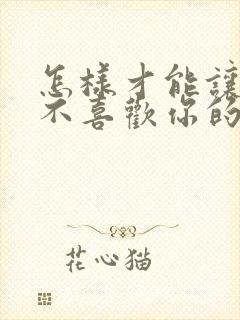 怎樣才能讓
不喜歡你的
花心猫